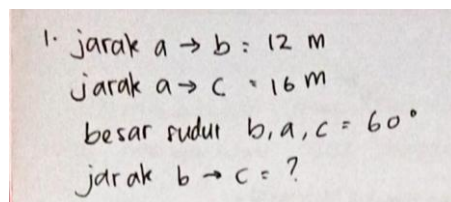 1. jarak a → b = 12 m
jarak a → c = 16 m
besar sudut b, a, c = 60°
jarak b → c = ?